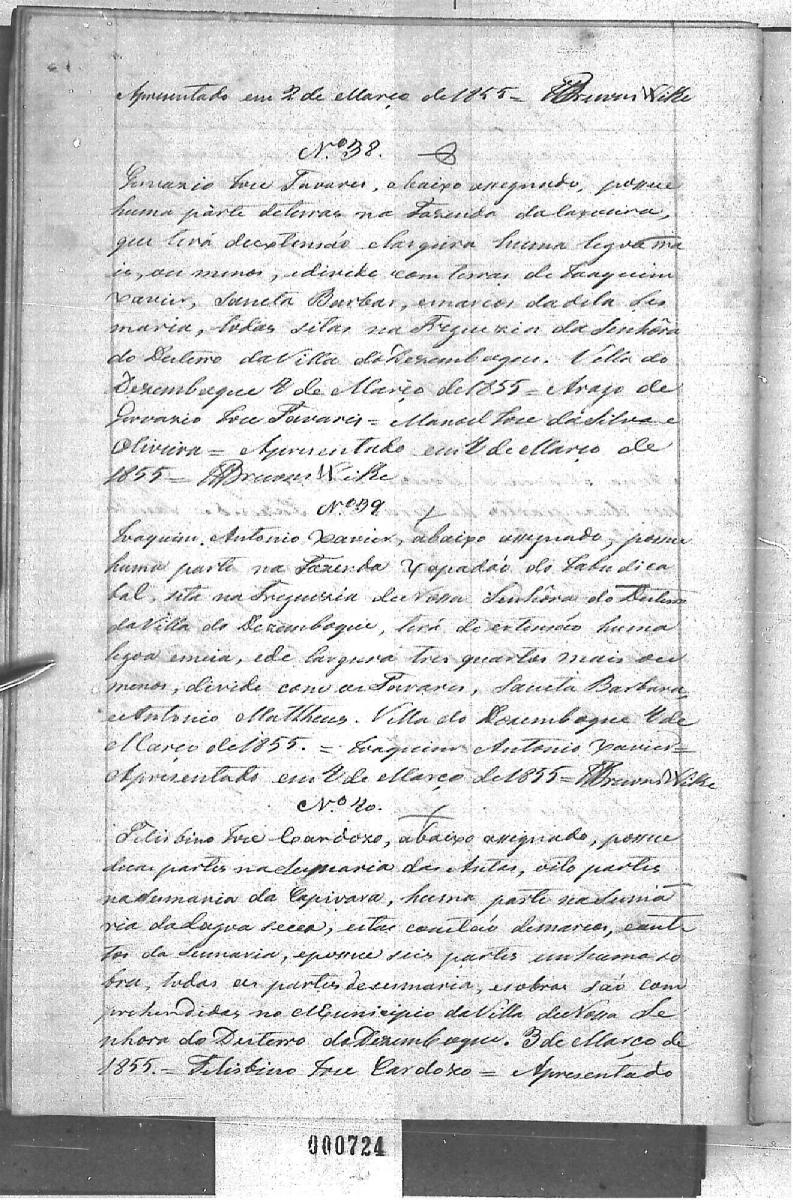 Apresentado em 2 de Março de 1855=
Nº 38.
Gervazio Joze Tavares, abaixo assignado, possue
huma parte deterras na Fazenda da
que terá deextensão elargura huma legoa ma
is, ou menos, edivide com terras de Joaquim
Xavier, Sancta Barbar, emarcos dadila Ses
maria, todas sitas na Freguezia da Senhôra
do Desterro daVilla doDezemboque. Villa do
Dezemboque 2 de Março de 1855= Arogo de
Gervazio Joze Tavares= Manoel Joze daSilva e
Oliveira= Apresentado em 2 de Março de
1855=
Nº 39
Joaquim Antonio Xavier, abaixo assignado, possue
huma parte na Fazenda Xapadão do Jabudica
bal, sita na Freguezia deNossa Senhôra do Desterro
daVilla do Dezemboque, terá de extensão huma
legoa emeia, ede largura tres quartos mais ou
menos, divide com os Tavares, Sancta Barbara,
eAntonio Mattheus. Villa do Dezemboque 2 de
Março de 1855.= Joaquim Antonio Xavier=
Apresentado em 2 de Março de 1855=
Nº 40.
Felisbino Joze Cardozo, abaixo assignado, possue
duas partes nasesmaria das Antas, oito partes
nasesmaria da Capivara, huma parte nasesma
ria daLagoa secca, estas demarcos,
tos da Sesmaria, epossue seis partes emhuma so
bra, todas as partes desesmaria, esobras são com
prehendidas no Municipio daVilla deNossa Se
nhora do Desterro doDezemboque. 3 de Março de
1855.= Felisbino Joze Cardozo= Apresentado
000724